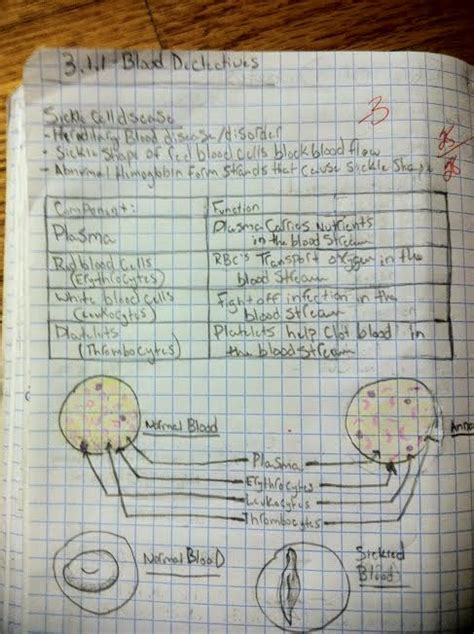 3.1.1 Blood Detectives
Sickle Cell disease
- Hereditary Blood disease/disorder
- Sickle Shape of red blood cells block blood flow
- Abnormal Hemoglobin form strands that cause sickle shape
3
Component: Function
Plasma Plasma Carries Nutrients
in the blood stream
Red blood cells RBC's Transport oxygen in the
(Erythrocytes) blood stream
White blood cells Fight off infection in the
(Leukocytes) blood stream
Platelets Platelets help clot blood in
(Thrombocytes) the blood stream
Normal Blood
Plasma
Erythrocytes
Leukocytes
Thrombocytes
Normal Blood
Sickled
Blood